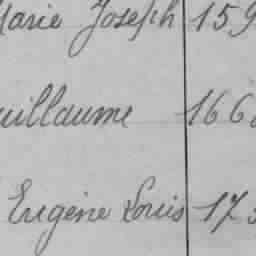 Marie Joseph 159
uillaume 166
Eugène Louis 173